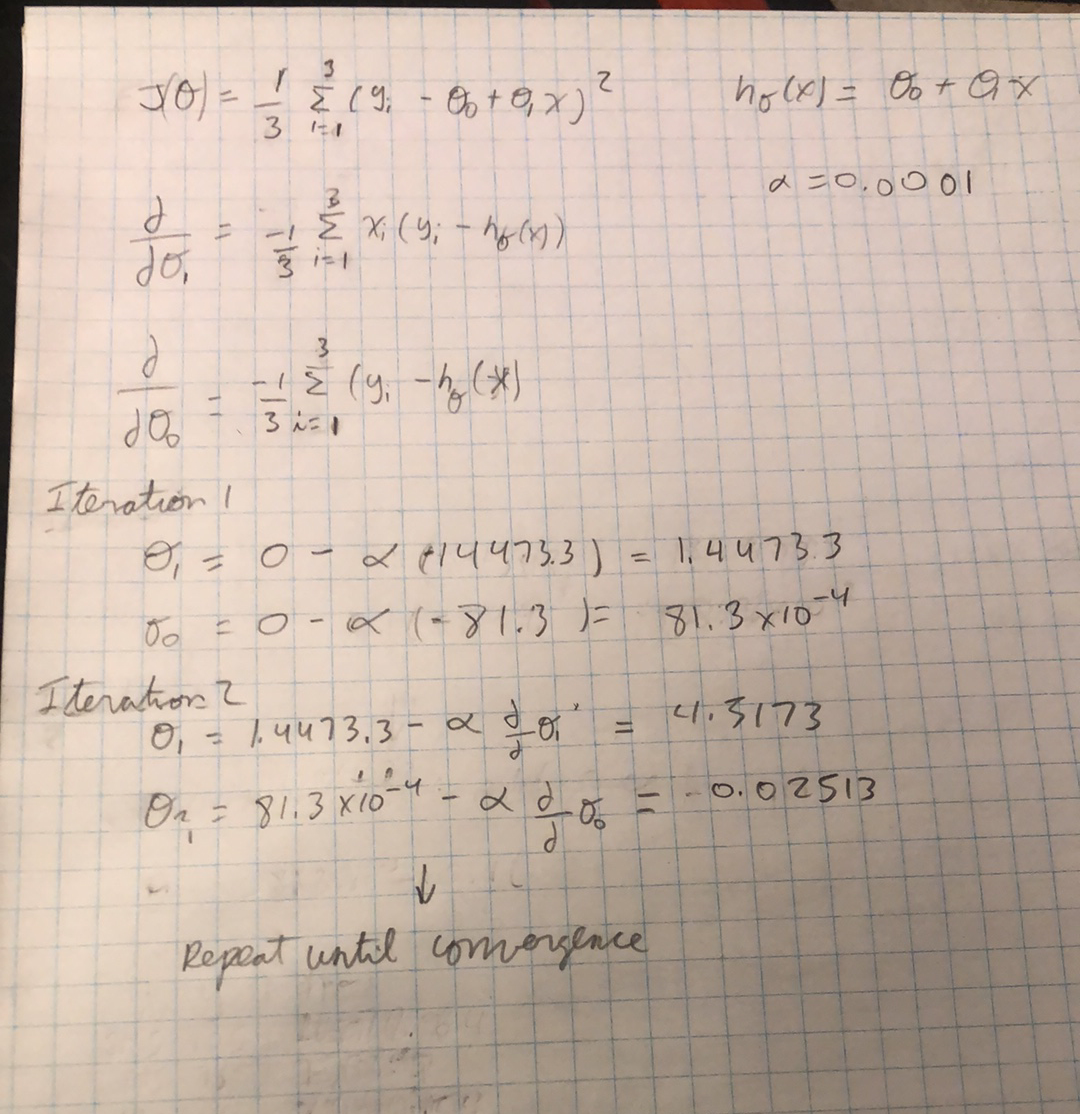 J(θ) = 1/3 Σ_{i=1}^{3} (y_i - θ_0 + θ_1 x)^2    h_θ(x) = θ_0 + θ_1 x
α = 0.0001
∂/∂θ_1 = -1/3 Σ_{i=1}^{3} x_i (y_i - h_θ(x))
∂/∂θ_0 = -1/3 Σ_{i=1}^{3} (y_i - h_θ(x)
Iteration 1
θ_1 = 0 - α (-14473.3) = 1.4473.3
θ_0 = 0 - α (-81.3) = 81.3 x10^-4
Iteration 2
θ_1 = 1.4473.3 - α ∂/∂ θ_1 =
θ = 81.3 x10^-4 - α ∂/∂ θ_0 = -0.02513
↓
Repeat until convergence